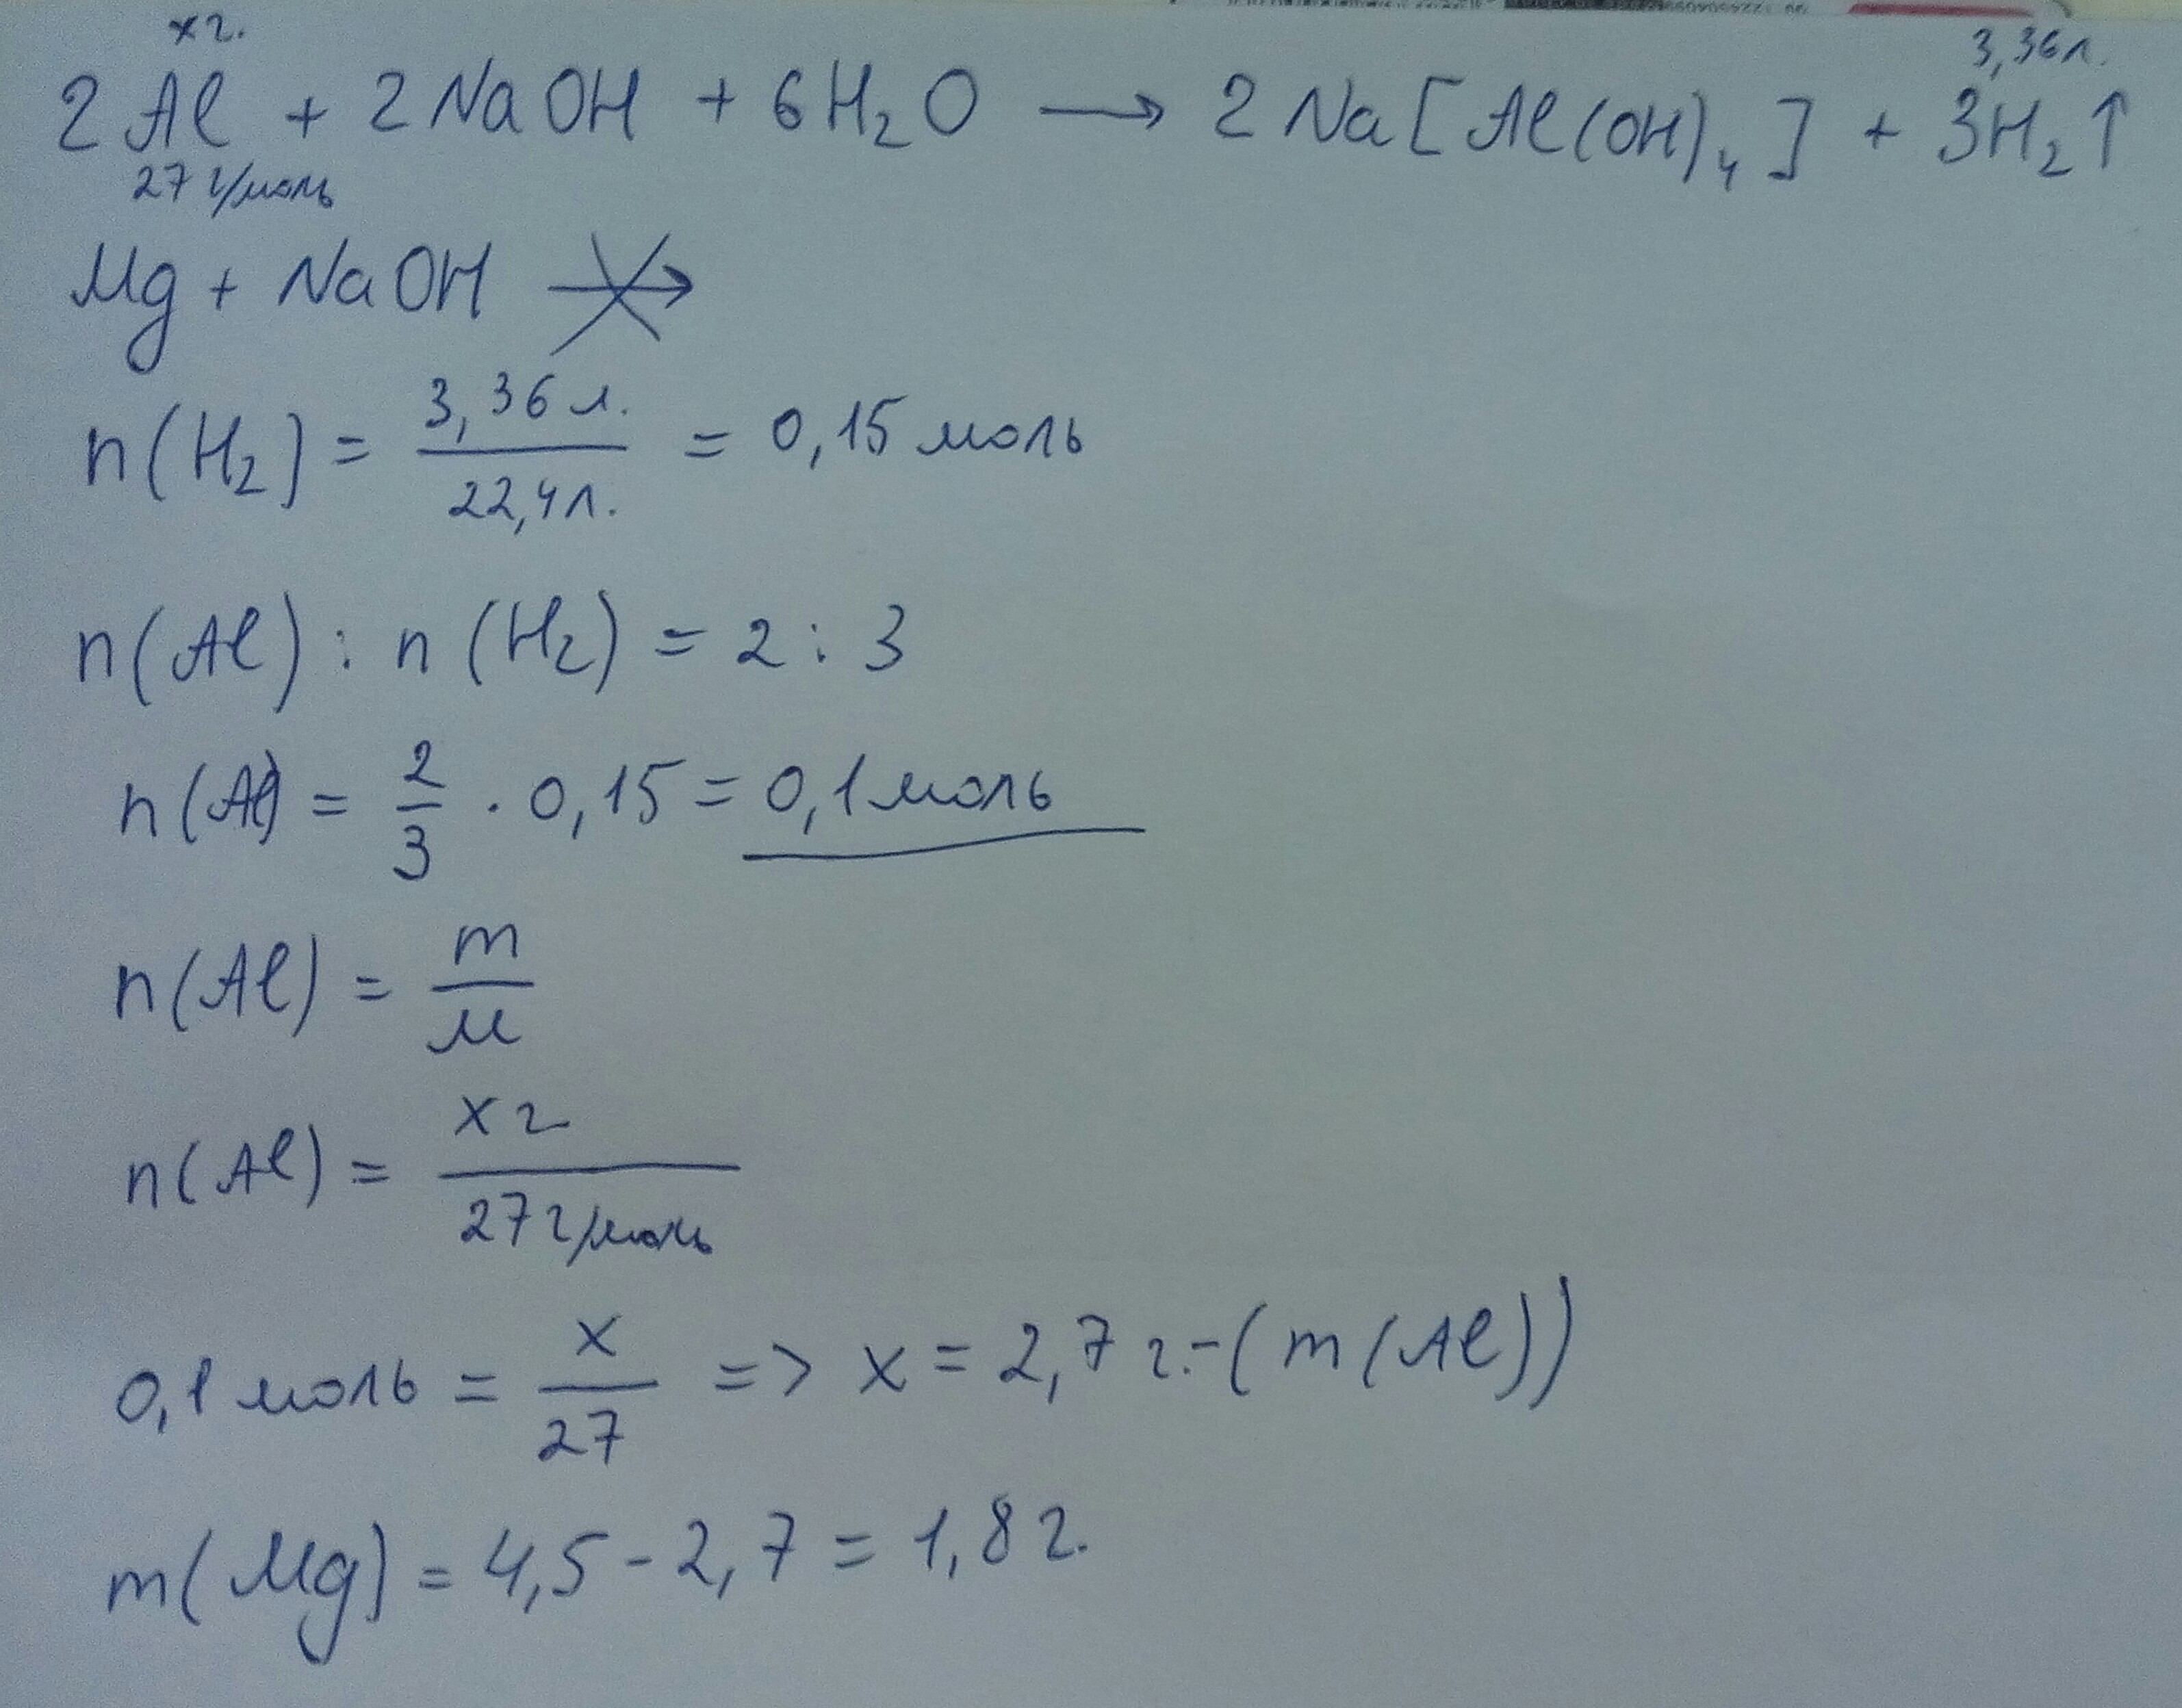 x г. 3,36 л.
2Al + 2NaOH + 6H₂O → 2Na[Al(OH)₄] + 3H₂↑
27 г/моль
Mg + NaOH ↛
n(H₂) = 3,36 л. / 22,4 л. = 0,15 моль
n(Al) : n(H₂) = 2 : 3
n(Al) = 2/3 · 0,15 = 0,1 моль
n(Al) = m/M
n(Al) = x г / 27 г/моль
0,1 моль = x/27 => x = 2,7 г. - (m(Al))
m(Mg) = 4,5 - 2,7 = 1,8 г.